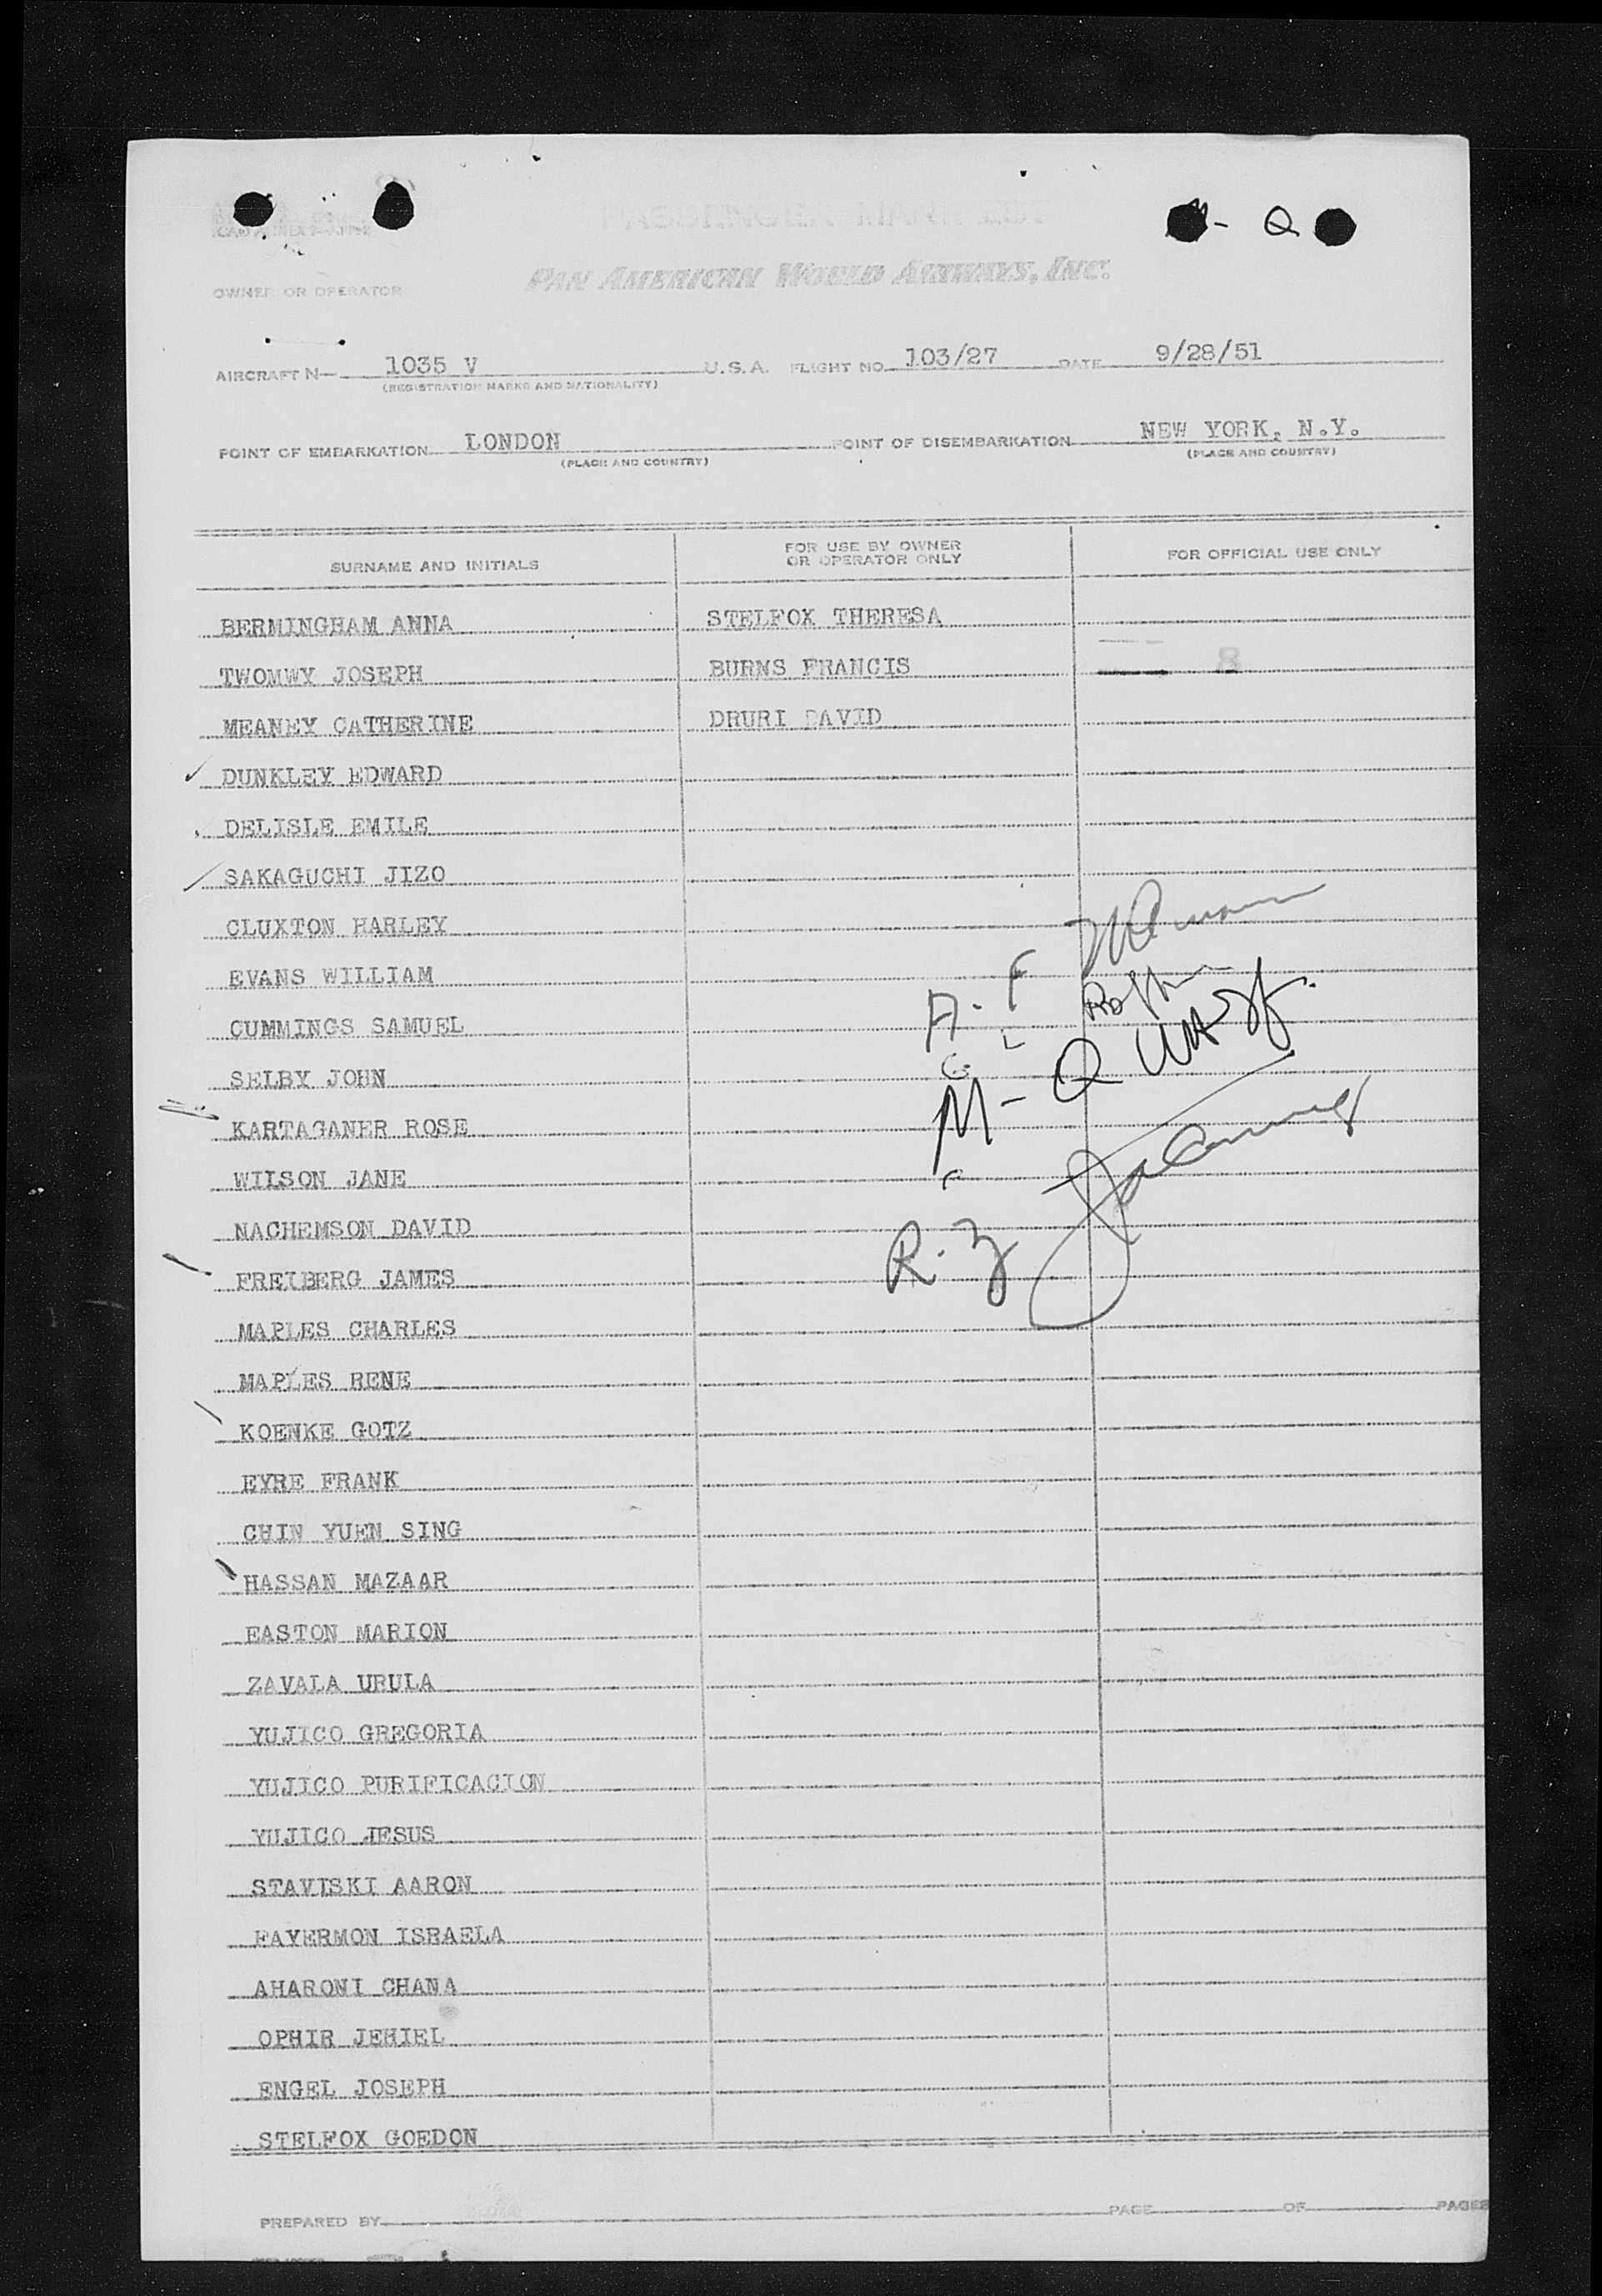 PASSENGER MANIFEST
M - Q
PAN AMERICAN WORLD AIRWAYS, INC.
OWNER OR OPERATOR
AIRCRAFT N— 1035 V U.S.A. FLIGHT NO. 103/27 DATE 9/28/51
(REGISTRATION MARKS AND NATIONALITY)
POINT OF EMBARKATION LONDON POINT OF DISEMBARKATION NEW YORK, N.Y.
(PLACE AND COUNTRY) (PLACE AND COUNTRY)
SURNAME AND INITIALS FOR USE BY OWNER OR OPERATOR ONLY FOR OFFICIAL USE ONLY
BERMINGHAM ANNA STELFOX THERESA
TWOMWY JOSEPH BURNS FRANCIS 8
MEANEY CATHERINE DRURI DAVID
DUNKLEY EDWARD
DELISLE EMILE
SAKAGUCHI JIZO
CLUXTON HARLEY
EVANS WILLIAM A - F
CUMMINGS SAMUEL G L
SELBY JOHN M - Q
KARTAGANER ROSE
WILSON JANE
NACHEMSON DAVID R - Z
FREIBERG JAMES
MAPLES CHARLES
MAPLES RENE
KOENKE GOTZ
EYRE FRANK
CHIN YUEN SING
HASSAN MAZAAR
EASTON MARION
ZAVALA URULA
YUJICO GREGORIA
YUJICO PURIFICACION
YUJICO JESUS
STAVISKI AARON
FAYERMON ISRAELA
AHARONI CHANA
OPHIR JEHIEL
ENGEL JOSEPH
STELFOX GOEDON
PREPARED BY PAGE OF PAGES